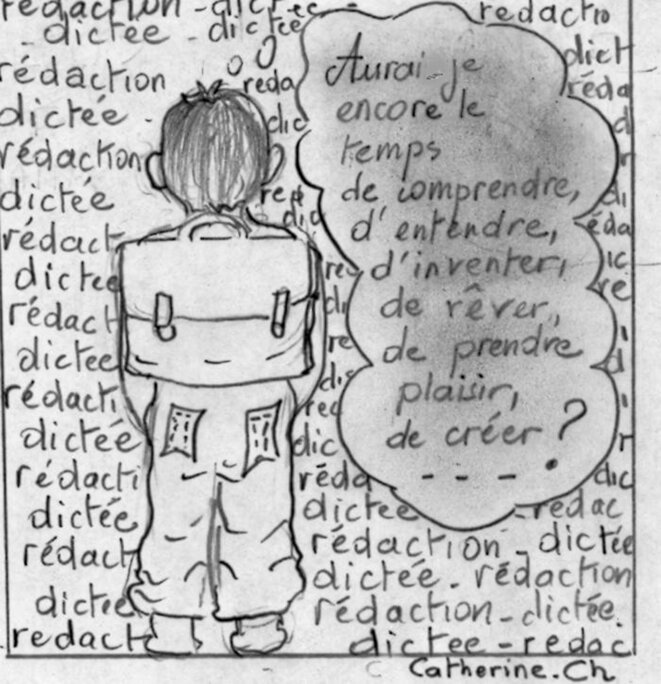 redaction - dictée -
redactio
dictée - dictée
dict
rédaction
reda
réda
dictée -
dic
d
rédaction
dictée
red
dic
di
rédact
éda
dictee
rec
ic
rédact
di
re
dictee
re
d
rédacti
dic
rec
dictée
dic
r
rédacti
réda
dic
dictée
dictee
redac
rédact
rédaction - dictée
dictée - rédaction
dictee
rédaction - dictée.
redact
dictee - redac
Aurai-je
encore le
temps
de comprendre,
d'entendre,
d'inventer,
de rêver,
de prendre
plaisir,
de créer ?
- - - .
Catherine.Ch